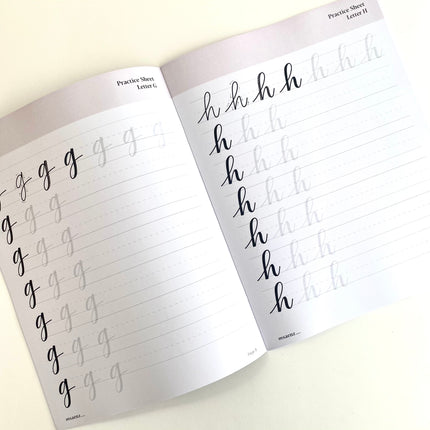 Practice Sheet
Letter G
g g g g g g g
g g g
g g g
g g g
g g g
g g g
g g g
Practice Sheet
Letter H
h h h h h h h
h h h
h h h
h h h
h h h
h h h
h h h